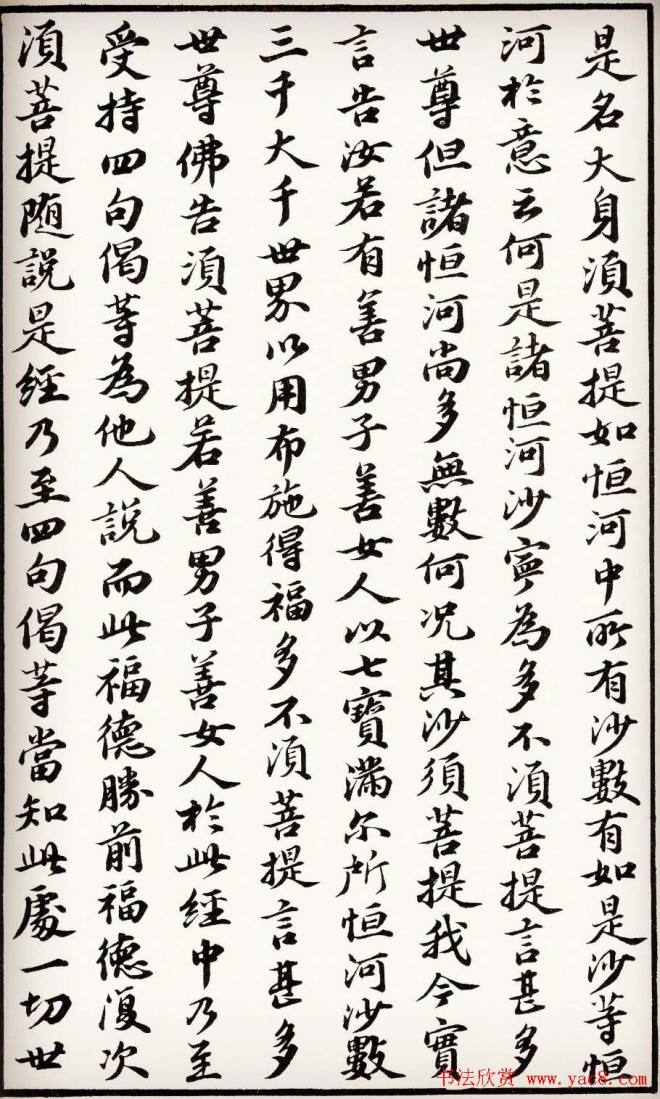 是名大身須菩提如恒河中所有沙數有如是沙等恒
河於意云何是諸恒河沙寧為多不須菩提言甚多
世尊但諸恒河尚多無數何況其沙須菩提我今實
言告汝若有善男子善女人以七寶滿尔所恒河沙數
三千大千世界以用布施得福多不須菩提言甚多
世尊佛告須菩提若善男子善女人於此經中乃至
受持四句偈等為他人說而此福德勝前福德復次
須菩提随說是經乃至四句偈等當知此處一切世
书法欣赏 www.yac8.com